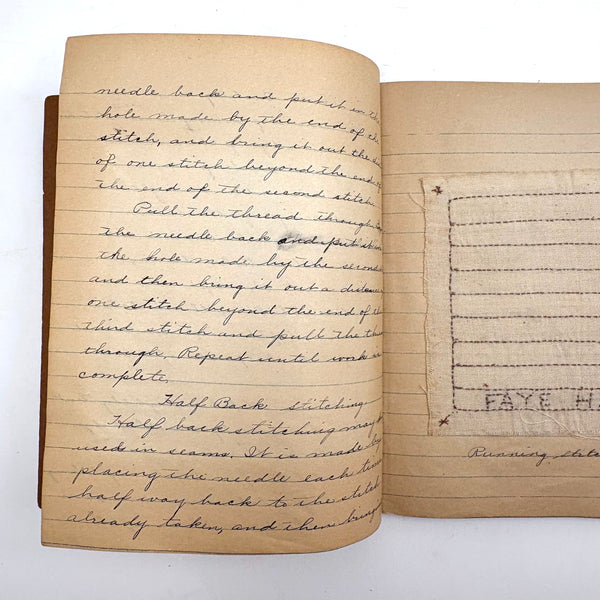 needle back and put it in the
hole made by the end of the
stitch, and bring it out the
of one stitch beyond the end of
the end of the second stitch.
Pull the thread through,
the needle back and put it in
the hole made by the second
and then bring it out a distance
one stitch beyond the end of the
third stitch and pull the
through. Repeat until work is
complete.
Half Back stitching
Half back stitching may be
used in seams. It is made by
placing the needle each time
half way back to the stitch
already taken, and then bring
FAYE HA
Running stitc